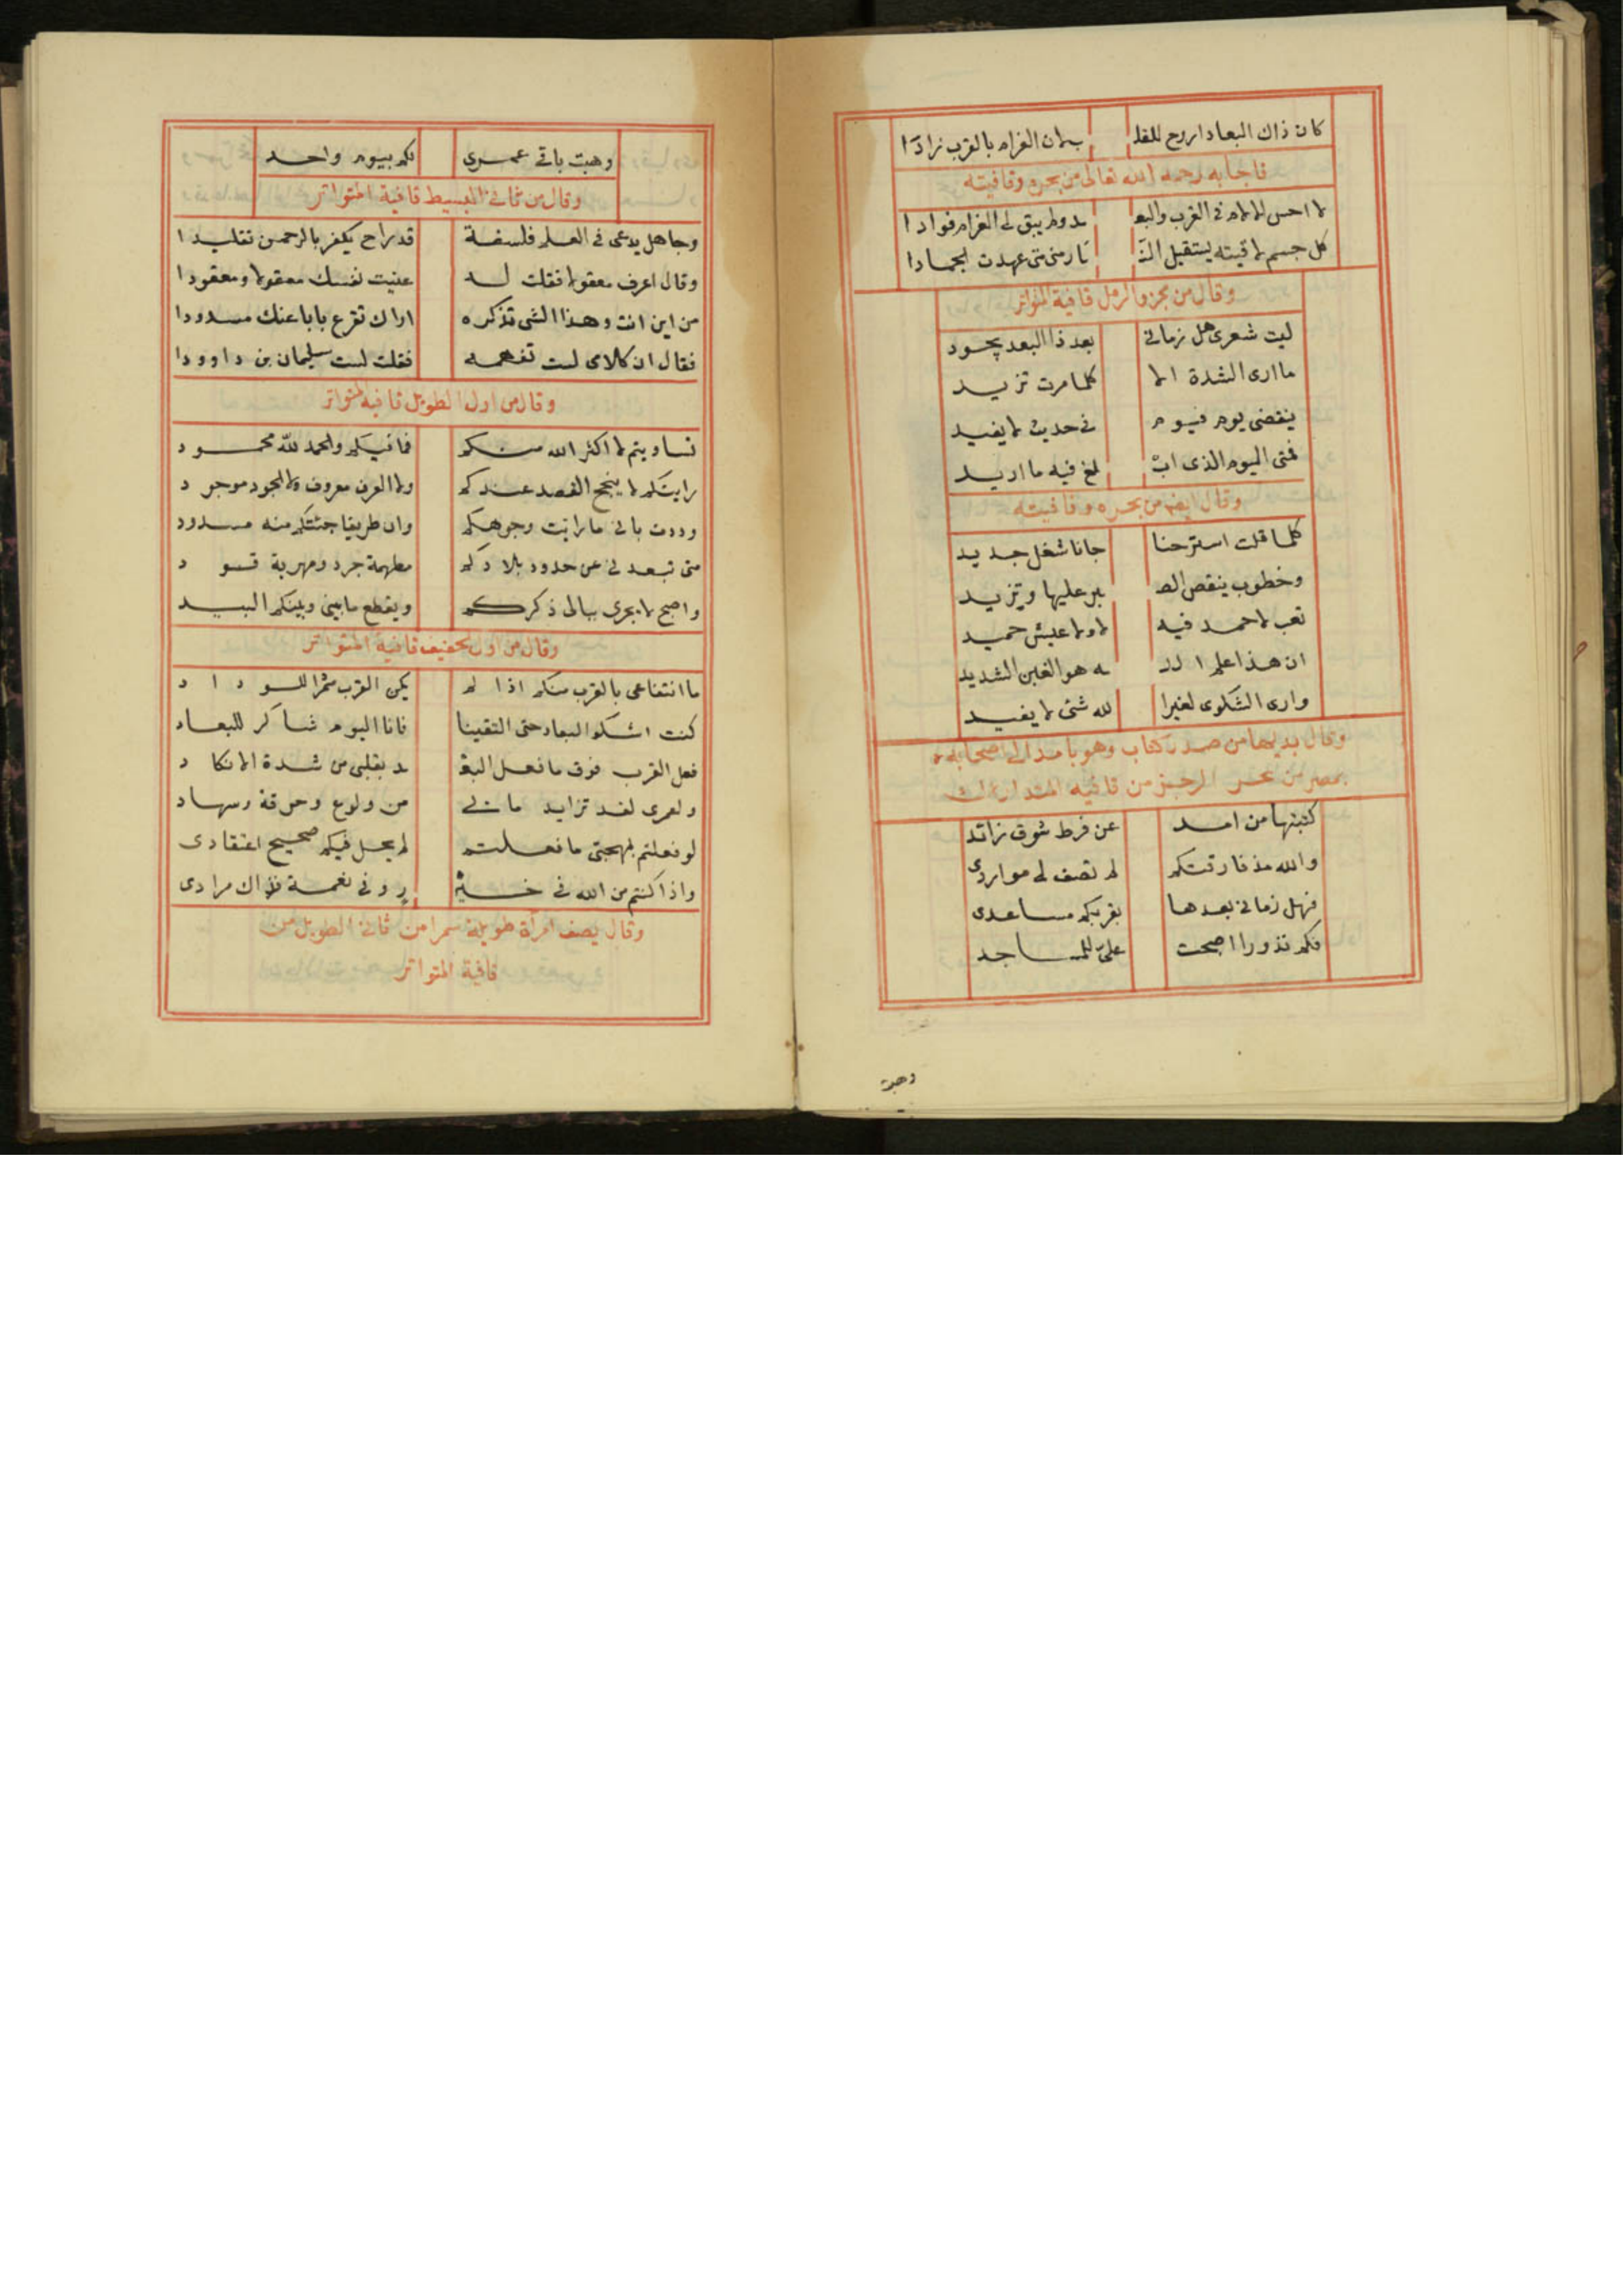 كان ذاك البعاد اروح للقلـ بلان الغرام بالقرب زادا
فاجابه رحمه الله تعالى من بحره وقافيته
لا احس الالام في القرب والبعـ ـد ولم يبق لي الغرام فوادا
كل جسم لاقيته يستقبل النـ ـار منى متى عهدت الجمادا
وقال من مجزو الرمل قافية المتواتر
ليت شعرى هل زماني بعد ذا البعد يجود
ما ارى الشدة الا كلما مرت تزيد
ينقضى يوم فيوم في حديث لا يفيد
فمتى اليوم الذى ابـ ـلغ فيه ما اريد
وقال ايضا من بحره وقافيته
كلما قلت استرحنا جانا شغل جديد
وخطوب ينقص الصـ ـبر عليها وتزيد
تعب لا حمد فيه لا ولا عيش حميد
ان هذا علم الله هو الغبن الشديد
وارى الشكوى لغير الله شئى لا يفيد
وقال بديها من صدر كتاب وهو بامد الى اصحابه
بمصر من بحر الرجز من قافية المتدارك
كتبتها من امد عن فرط شوق زائد
والله مذ فارقتكم لم تصف لي مواردى
فهل زماني بعدها بقربكم مساعدى
فكم نذورا اصبحت على للمساجد
وهبت
وهبت باقي عمرى لكم بيوم واحد
وقال من ثاني البسيط قافية المتواتر
وجاهل يدعى في العلم فلسفة قد راح يكفر بالرحمن تقليدا
وقال اعرف معقولا فقلت له عنيت نفسك معقولا ومعقودا
من اين انت وهذا الشي تذكره اراك تقرع بابا عنك مسدودا
فقال ان كلامى لست تفهمه فقلت لست سليمان بن داوودا
وقال من اول الطويل قافية المتواتر
تساويتم لا اكثر الله منكم فما فيكم والحمد لله محمود
رايتكم لا ينجح القصد عندكم ولا العرف معروف ولا الجود موجود
وددت باني ما رايت وجوهكم وان طريقا جئتكم منه مسدود
متى تبعدني عن حدود بلادكم مطهمة جرد ومهرية قود
واصبح لا يجرى ببالى ذكركم ويقطع ما بيني وبينكم البيد
وقال من اول الخفيف قافية المتواتر
ما انتفاعى بالقرب منكم اذا لم يكن القرب مثمرا للوداد
كنت اشكو البعاد حتى التقينا فانا اليوم شاكر للبعاد
فعل القرب فوق ما فعل البعـ ـد بقلبى من شدة الانكاد
ولعمرى لقد تزايد ما لي من ولوع وحرقة وسهاد
لو فعلتم بمهجتى ما فعلتم لم يحل فيكم صحيح اعتقادى
واذا كنتم من الله في خيـ ـر وفي نعمة فذاك مرادى
وقال يصف امرأة طويلة سمرا من ثاني الطويل من
قافية المتواتر